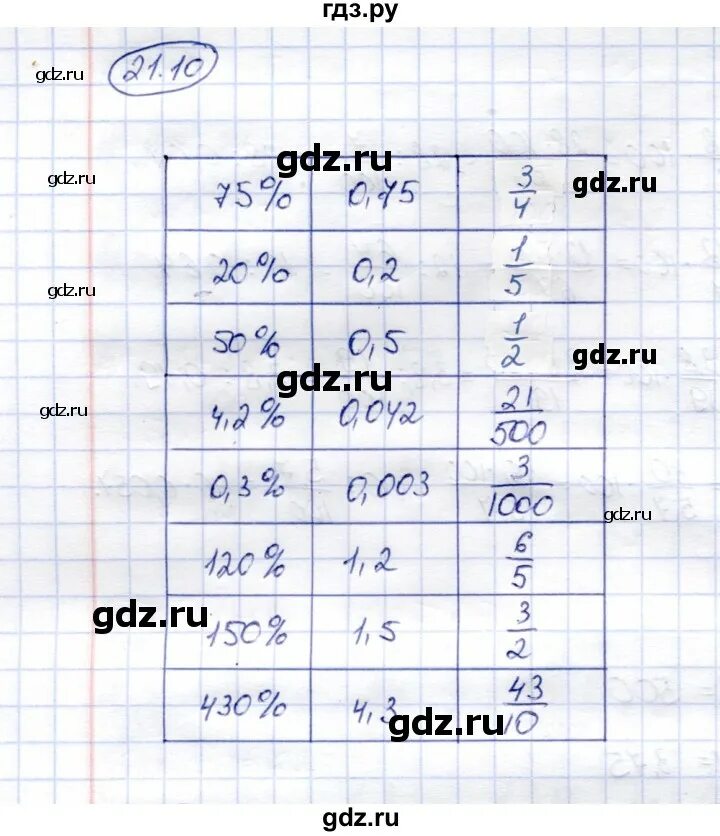 гдз.ру
21.10
gdz.ru
gdz.ru
75% 0,75 3/4
gdz.ru
gdz.ru
20% 0,2 1/5
gdz.ru
50% 0,5 1/2
gdz.ru
gdz.ru
4,2% 0,042 21/500
gdz.ru
0,3% 0,003 3/1000
gdz.ru
120% 1,2 6/5
gdz.ru
150% 1,5 3/2
430% 4,3 43/10
gdz.ru
gdz.ru